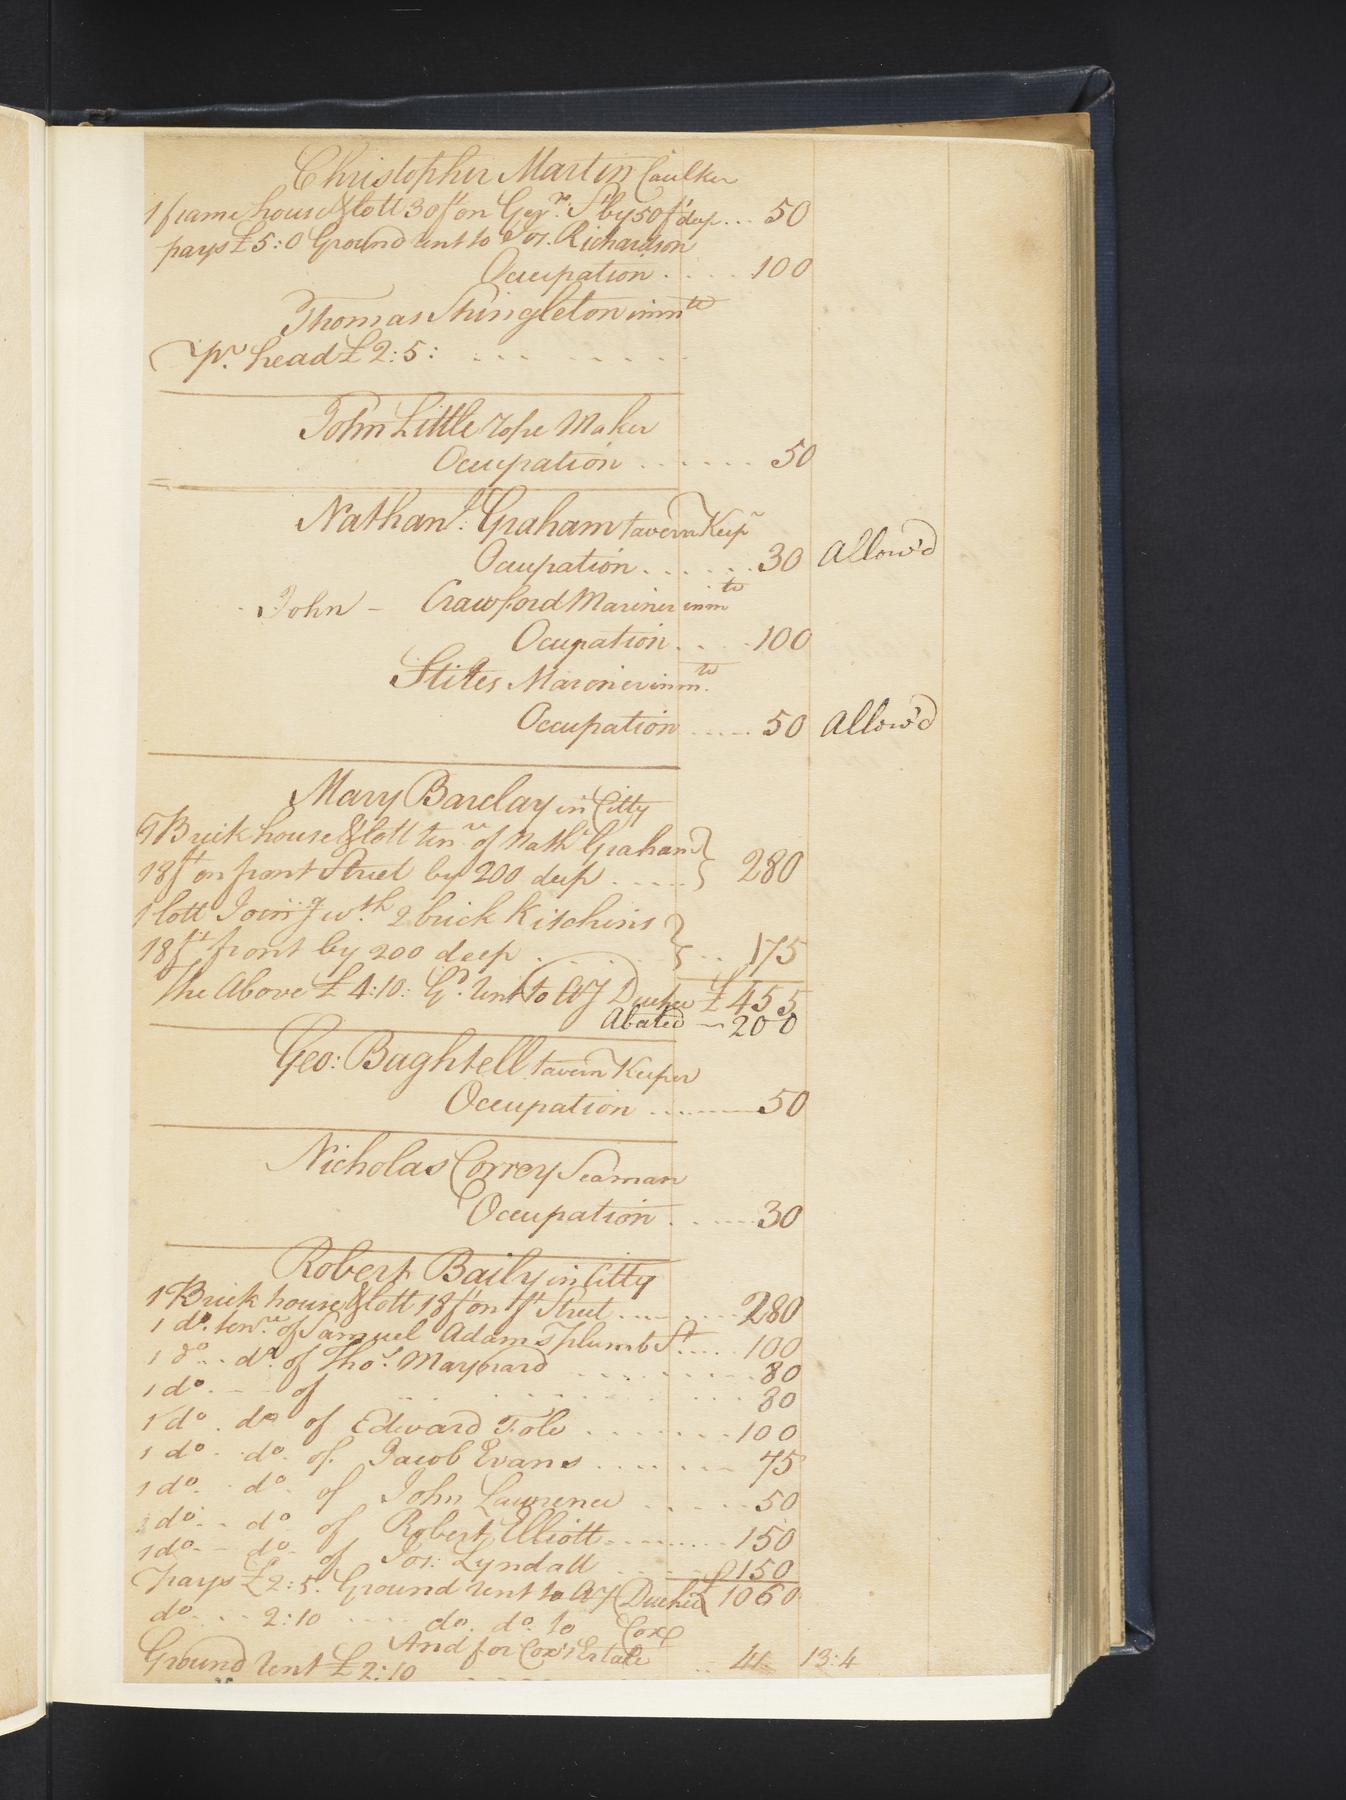 Christopher Martin Caulker
1 frame house & lott 30 ft on Ger.n St by 50 ft deep ... 50
pays £5:0 Ground rent to Jos. Richardson
Occupation . . . . . 100
Thomas Shingleton inm te
pr. head £2:5: ... . . . . .
John Little rope Maker
Occupation . . . . . . . 50
Nathanl. Graham tavern Keepr
Occupation . . . . . . 30 Allow'd
John - Crawford Mariner inm te
Occupation . . . . 100
Stites Marioner inm. te
Occupation ..... 50 Allow'd
Mary Barclay in Citty
1 Brick house & lott tenre of Nathl Graham
18 ft on front Street by 200 deep . . . . . 280
1 lott Join'g wth 2 brick Kitchins
18 ft front by 200 deep . . . . . . . . 175
The Above £4:10: Gd. rent to Duchee £ 455
Abated — 200
Geo: Baghtell tavern Keeper
Occupation ........ 50
Nicholas Correy Seaman
Occupation . . . . . . 30
Robert Baily in Citty
1 Brick house & lott 18 ft on ft Street .... .... 280
1 do. tenre. of Samuel Adams plumb St .... 100
1 do . . do of Thos. Maynard . . . . . . . . 80
1 do. - - of . . . . . . . . . . 80
1 do . do of Edward Fole . . . . . . . 100
1 do . . do. of. Jacob Evans . . . . . . . 75
1 do. . do. of John Lawrence . . . . . 50
1 do. - - do of Robert Elliott ......... 150
1 do - - do - of Jos: Lyndall . . . . . £ 150
pays £2:5. Ground rent to Duchee 1060
do . . . 2:10 . . . . . do. do. to Cox
And for Cox's Estate
Ground rent £2:10 . . . . . . 41 13:4